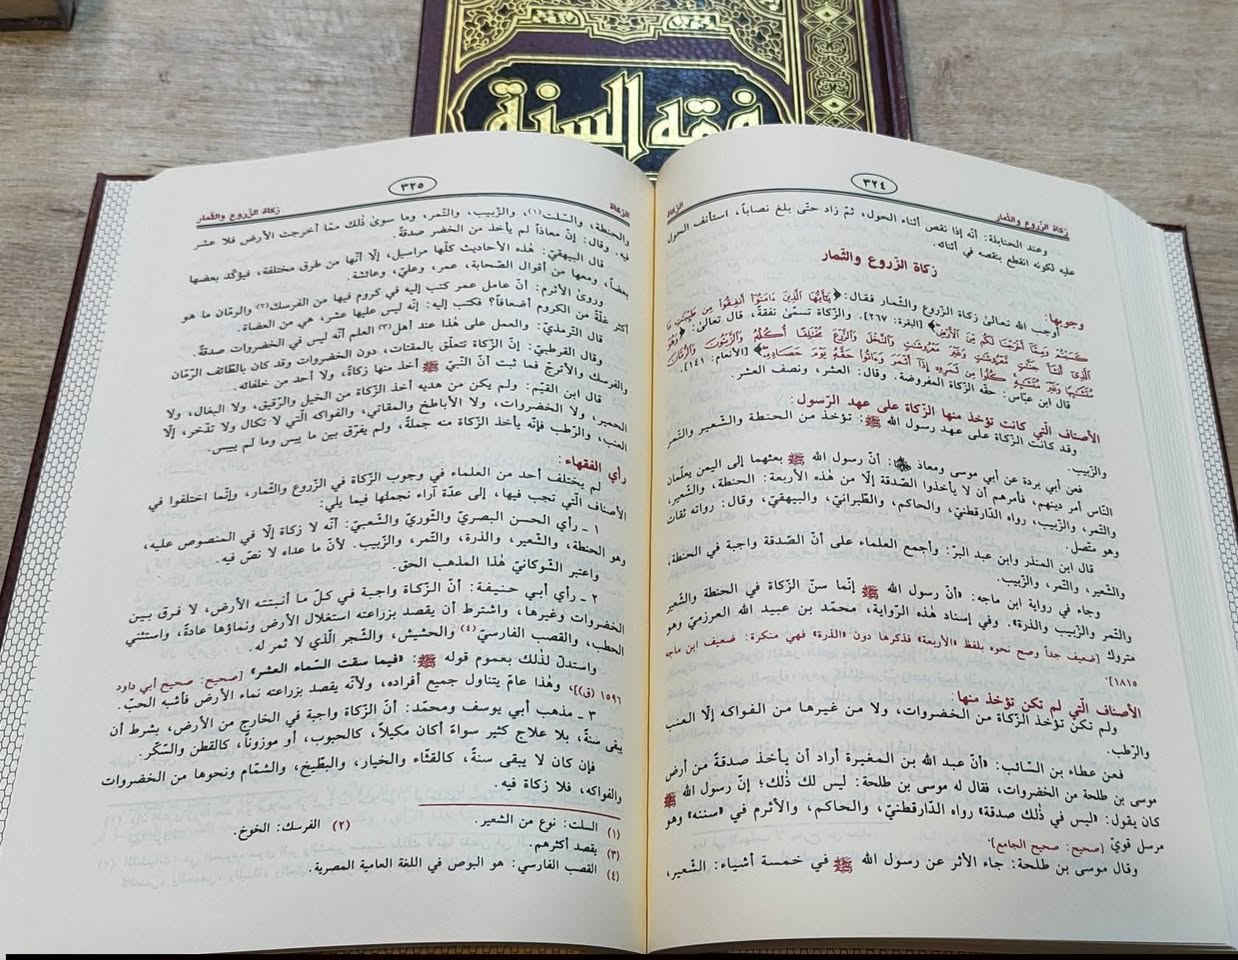 فقه السنة
٣٢٤
زكاة الزروع والثمار
الزكاة
وعند الحنابلة: أنّه إذا نقص أثناء الحول، ثمّ زاد حتّى بلغ نصاباً، استأنف الحول
عليه لكونه انقطع بنقصه في أثنائه.
زكاة الزروع والثمار
وجوبها:
أوجب الله تعالىٰ زكاة الزروع والثمار فقال: ﴿يَٰٓأَيُّهَا ٱلَّذِينَ ءَامَنُوٓاْ أَنفِقُواْ مِن طَيِّبَٰتِ مَا
كَسَبۡتُمۡ وَمِمَّآ أَخۡرَجۡنَا لَكُم مِّنَ ٱلۡأَرۡضِ﴾ [البقرة: ٢٦٧]. والزّكاة تسمّىٰ نفقةً، قال تعالىٰ: ﴿وَهُوَ
ٱلَّذِيٓ أَنشَأَ جَنَّٰتٖ مَّعۡرُوشَٰتٖ وَغَيۡرَ مَعۡرُوشَٰتٖ وَٱلنَّخۡلَ وَٱلزَّرۡعَ مُخۡتَلِفًا أُكُلُهُۥ وَٱلزَّيۡتُونَ وَٱلرُّمَّانَ
مُتَشَٰبِهٗا وَغَيۡرَ مُتَشَٰبِهٖۚ كُلُواْ مِن ثَمَرِهِۦٓ إِذَآ أَثۡمَرَ وَءَاتُواْ حَقَّهُۥ يَوۡمَ حَصَادِهِۦ﴾ [الأنعام: ١٤١].
قال ابن عبّاس: حقّه الزكاة المفروضة. وقال: العشر، ونصف العشر.
الأصناف الّتي كانت تؤخذ منها الزكاة على عهد الرّسول:
وقد كانت الزكاة على عهد رسول الله ﷺ: تؤخذ من الحنطة والشّعير والتّمر
والزّبيب.
فعن أبي بردة عن أبي موسى ومعاذ: أنّ رسول الله ﷺ بعثهما إلى اليمن يعلّمان
النّاس أمر دينهم، فأمرهم أن لا يأخذوا الصّدقة إلّا من هٰذه الأربعة: الحنطة، والشّعير،
والتّمر، والزّبيب، رواه الدّارقطنيّ، والحاكم، والطّبرانيّ، والبيهقيّ، وقال: رواته ثقات
وهو متّصل.
قال ابن المنذر وابن عبد البرّ: وأجمع العلماء على أنّ الصّدقة واجبة في الحنطة،
والشّعير، والتّمر، والزّبيب.
وجاء في رواية ابن ماجه: «أنّ رسول الله ﷺ إنّما سنّ الزّكاة في الحنطة والشّعير
والتّمر والزّبيب والذّرة». وفي إسناد هٰذه الرّواية، محمّد بن عبيد الله العرزميّ وهو
متروك [ضعيف جداً وصح نحوه بلفظ «الأربعة» فذكرها دون «الذرة» فهي منكرة: ضعيف ابن ماجه
١٨١٥].
الأصناف الّتي لم تكن تؤخذ منها
ولم تكن تؤخذ الزّكاة من الخضروات، ولا من غيرها من الفواكه إلّا العنب
والرّطب.
فعن عطاء بن السّائب: «أنّ عبد الله بن المغيرة أراد أن يأخذ صدقةً من أرض
موسى بن طلحة من الخضروات، فقال له موسى بن طلحة: ليس لك ذٰلك؛ إنّ رسول الله ﷺ
كان يقول: «ليس في ذلك صدقة» رواه الدّارقطنيّ، والحاكم، والأثرم في «سننه» وهو
مرسل قويّ [صحيح: صحيح الجامع]
وقال موسى بن طلحة: جاء الأثر عن رسول الله ﷺ في خمسة أشياء: الشّعير،
٣٢٥
الزكاة
زكاة الزروع والثمار
والحنطة، والسّلت(١)، والزّبيب، والتّمر، وما سوىٰ ذٰلك ممّا أخرجت الأرض فلا عشر
فيه. وقال: إنّ معاذاً لم يأخذ من الخضر صدقةً.
قال البيهقيّ: هٰذه الأحاديث كلّها مراسيل، إلّا أنّها من طرق مختلفة، فيؤكّد بعضها
بعضاً، ومعها من أقوال الصّحابة، عمر، وعليّ، وعائشة.
وروىٰ الأثرم: أنّ عامل عمر كتب إليه في كروم فيها من الفرسك(٢) والرمّان ما هو
أكثر غلّةً من الكروم أضعافاً؟ فكتب إليه: إنّه ليس عليها عشر، هي من العضاة.
قال التّرمذيّ: والعمل على هٰذا عند أهل(٣) العلم أنّه ليس في الخضروات صدقةٌ.
وقال القرطبيّ: إنّ الزّكاة تتعلّق بالمقتات، دون الخضروات وقد كان بالطّائف الرّمّان
والفرسك والأترجّ فما ثبت أنّ النّبيّ ﷺ أخذ منها زكاةً، ولا أحد من خلفائه.
قال ابن القيّم: ولم يكن من هديه أخذ الزّكاة من الخيل والرّقيق، ولا البغال، ولا
الحمير، ولا الخضروات، ولا الأباطخ والمقاثي، والفواكه الّتي لا تكال ولا تدّخر، إلّا
العنب، والرّطب فإنّه يأخذ الزّكاة منه جملةً، ولم يفرّق بين ما يبس وما لم ييبس.
رأي الفقهاء:
لم يختلف أحد من العلماء في وجوب الزّكاة في الزّروع والثّمار، وإنّما اختلفوا في
الأصناف الّتي تجب فيها، إلى عدّة آراء نجملها فيما يلي:
١ - رأي الحسن البصريّ والثّوريّ والشّعبيّ: أنّه لا زكاة إلّا في المنصوص عليه،
وهو الحنطة، والشّعير، والذرة، والتّمر، والزّبيب. لأنّ ما عداه لا نصّ فيه.
واعتبر الشّوكانيّ هٰذا المذهب الحق.
٢ - رأي أبي حنيفة: أنّ الزّكاة واجبة في كلّ ما أنبتته الأرض، لا فرق بين
الخضروات وغيرها، واشترط أن يقصد بزراعته استغلال الأرض ونماؤها عادةً، واستثنىٰ
الحطب، والقصب الفارسيّ(٤) والحشيش، والشّجر الّذي لا ثمر له.
واستدلّ لذٰلك بعموم قوله ﷺ: «فيما سقت السّماء العشر» [صحيح: صحيح أبي داود
١٥٩٦ (ق)]، وهٰذا عامّ يتناول جميع أفراده، ولأنّه يقصد بزراعته نماء الأرض فأشبه الحبّ.
٣ - مذهب أبي يوسف ومحمّد: أنّ الزّكاة واجبة في الخارج من الأرض، بشرط أن
يبقى سنةً، بلا علاج كثير سواءً أكان مكيلاً، كالحبوب، أو موزوناً، كالقطن والسّكّر.
فإن كان لا يبقى سنةً، كالقثّاء والخيار، والبطّيخ، والشّمّام ونحوها من الخضروات
والفواكه، فلا زكاة فيه.
(١) السلت: نوع من الشعير. (٢) الفرسك: الخوخ.
(٣) يقصد أكثرهم.
(٤) القصب الفارسي: هو البوص في اللغة العامية المصرية.